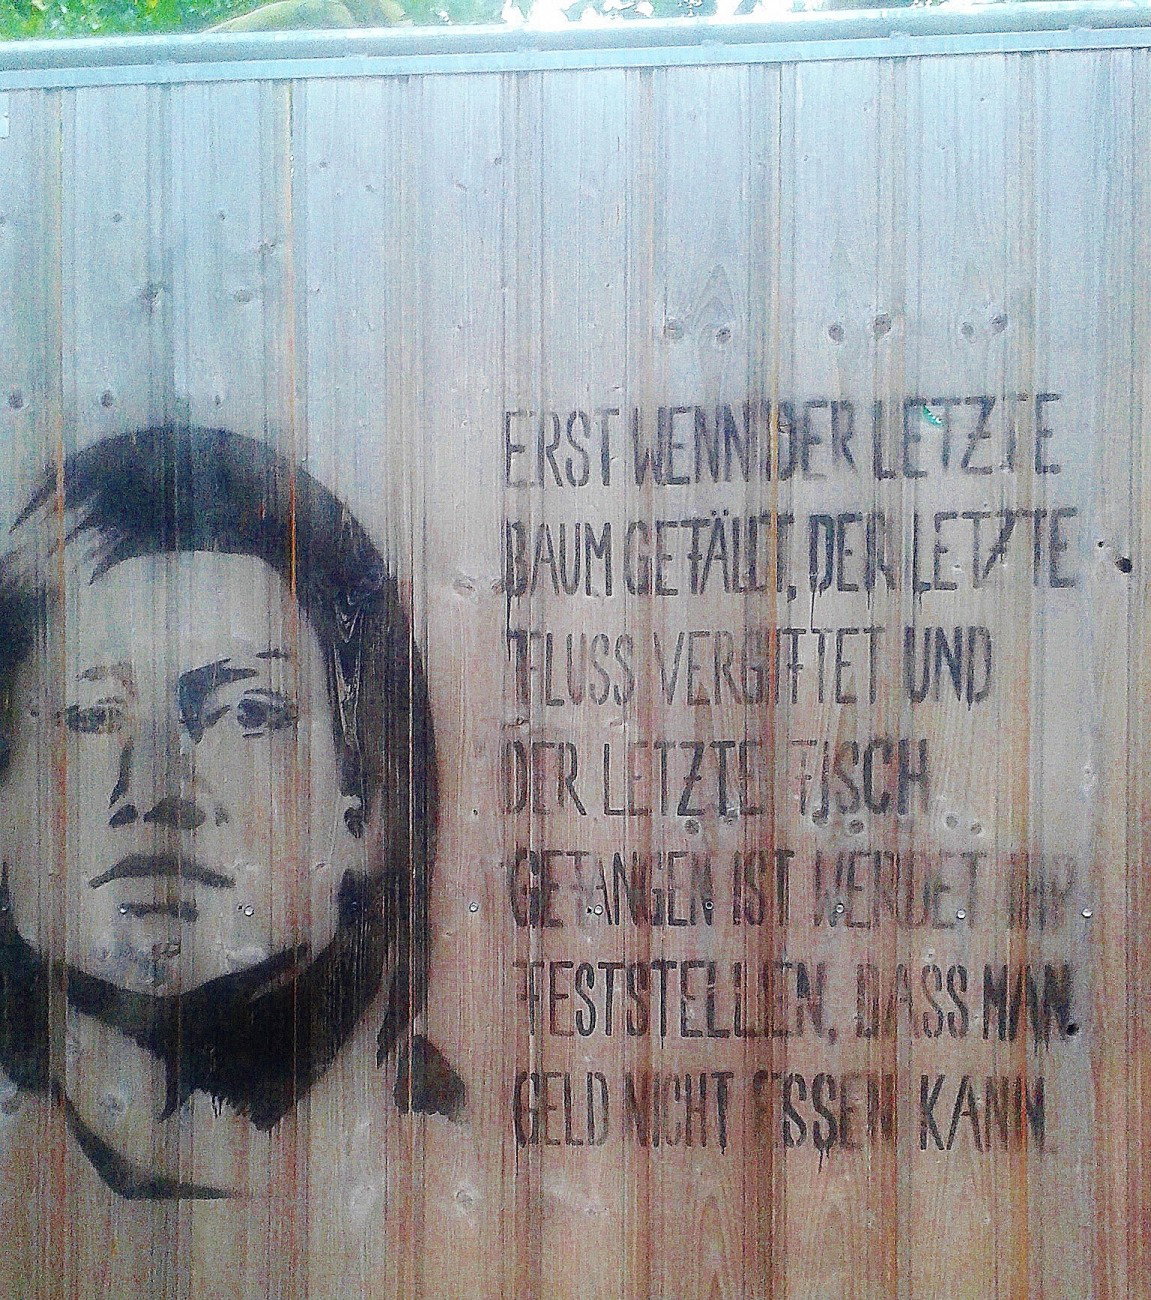 ERST WENN DER LETZTE
BAUM GEFÄLLT, DER LETZTE
FLUSS VERGIFTET UND
DER LETZTE FISCH
GEFANGEN IST WERDET IHR
FESTSTELLEN, DASS MAN
GELD NICHT ESSEN KANN